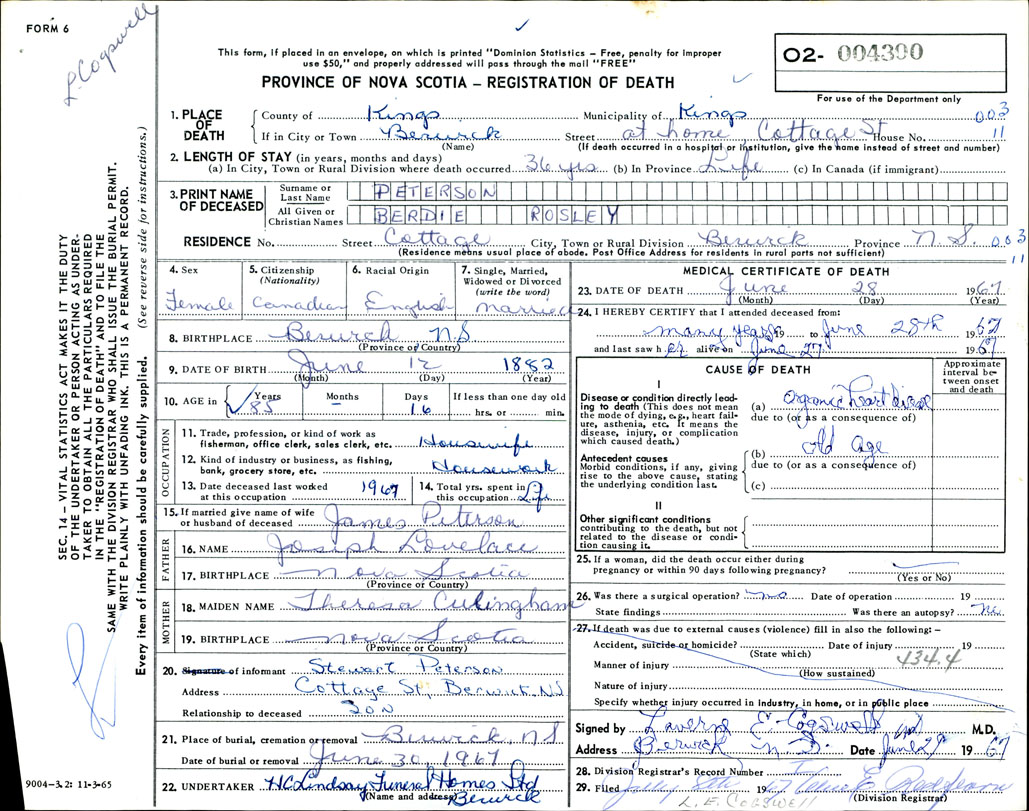 FORM 6
L. Cogswell
This form, if placed in an envelope, on which is printed "Dominion Statistics – Free, penalty for improper
use $50," and properly addressed will pass through the mail "FREE"
PROVINCE OF NOVA SCOTIA – REGISTRATION OF DEATH
O2- 004390
For use of the Department only
1. PLACE OF DEATH
County of Kings Municipality of Kings 003
If in City or Town Berwick Street at home Cottage St House No. 11
(Name) (If death occurred in a hospital or institution, give the name instead of street and number)
2. LENGTH OF STAY (in years, months and days)
(a) In City, Town or Rural Division where death occurred 36 yrs (b) In Province Life (c) In Canada (if immigrant)
3. PRINT NAME OF DECEASED
Surname or Last Name PETERSON
All Given or Christian Names BERDIE ROSLEY
RESIDENCE No. Street Cottage City, Town or Rural Division Berwick Province N.S. 003
(Residence means usual place of abode. Post Office Address for residents in rural parts not sufficient) 11
4. Sex Female
5. Citizenship (Nationality) Canadian
6. Racial Origin English
7. Single, Married, Widowed or Divorced (write the word) married
8. BIRTHPLACE Berwick N.S
(Province or Country)
9. DATE OF BIRTH June 12 1882
(Month) (Day) (Year)
10. AGE in Years 85 Months – Days 16 If less than one day old hrs. or min.
OCCUPATION
11. Trade, profession, or kind of work as fisherman, office clerk, sales clerk, etc. Housewife
12. Kind of industry or business, as fishing, bank, grocery store, etc. Housework
13. Date deceased last worked at this occupation 1967
14. Total yrs. spent in this occupation Life
15. If married give name of wife or husband of deceased James Peterson
FATHER
16. NAME Joseph Lovelace
17. BIRTHPLACE Nova Scotia
(Province or Country)
MOTHER
18. MAIDEN NAME Theresa
19. BIRTHPLACE Nova Scotia
(Province or Country)
20. Signature of informant Stewart Peterson
Address Cottage St, Berwick, N.S.
Relationship to deceased son
21. Place of burial, cremation or removal Berwick, N.S
Date of burial or removal June 30, 1967
22. UNDERTAKER H C Lindsay Funeral Homes Ltd
(Name and address) Berwick
MEDICAL CERTIFICATE OF DEATH
23. DATE OF DEATH June 28 1967
(Month) (Day) (Year)
24. I HEREBY CERTIFY that I attended deceased from:
many years 19 to June 28th 1967
and last saw her alive on June 27 1967
CAUSE OF DEATH
Approximate interval between onset and death
I
Disease or condition directly leading to death (This does not mean the mode of dying, e.g., heart failure, asthenia, etc. It means the disease, injury, or complication which caused death.)
(a) organic heart disease
due to (or as a consequence of)
Antecedent causes
Morbid conditions, if any, giving rise to the above cause, stating the underlying condition last.
(b) old age
due to (or as a consequence of)
(c)
II
Other significant conditions
contributing to the death, but not related to the disease or condition causing it.
25. If a woman, did the death occur either during pregnancy or within 90 days following pregnancy?
(Yes or No)
26. Was there a surgical operation? no Date of operation 19
State findings Was there an autopsy? no
27. If death was due to external causes (violence) fill in also the following: –
Accident, suicide or homicide? Date of injury 19
(State which) 434.4
Manner of injury
(How sustained)
Nature of injury
Specify whether injury occurred in industry, in home, or in public place
Signed by Laverne E Cogswell md. M.D.
Address Berwick N.S. Date June 29 1967
28. Division Registrar's Record Number
29. Filed July 19 67
(Division Registrar)
L. E. COGSWELL
SEC. 14 – VITAL STATISTICS ACT MAKES IT THE DUTY
OF THE UNDERTAKER OR PERSON ACTING AS UNDER-
TAKER TO OBTAIN ALL THE PARTICULARS REQUIRED
IN THE "REGISTRATION OF DEATH" AND TO FILE THE
SAME WITH THE DIVISION REGISTRAR WHO SHALL ISSUE THE BURIAL PERMIT.
WRITE PLAINLY WITH UNFADING INK. THIS IS A PERMANENT RECORD.
Every item of information should be carefully supplied. (See reverse side for instructions.)
9004-3.2: 11-3-65